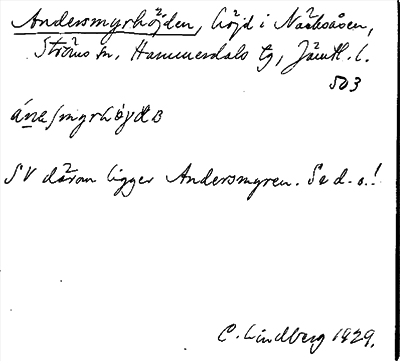 Andersmyrhöjden, höjd i Näset,
Ströms sn, Hammerdals tg, Jämtl. l.
503
SV därom ligger Andersmyren. Se d. o.!
C. Lindberg 1929.